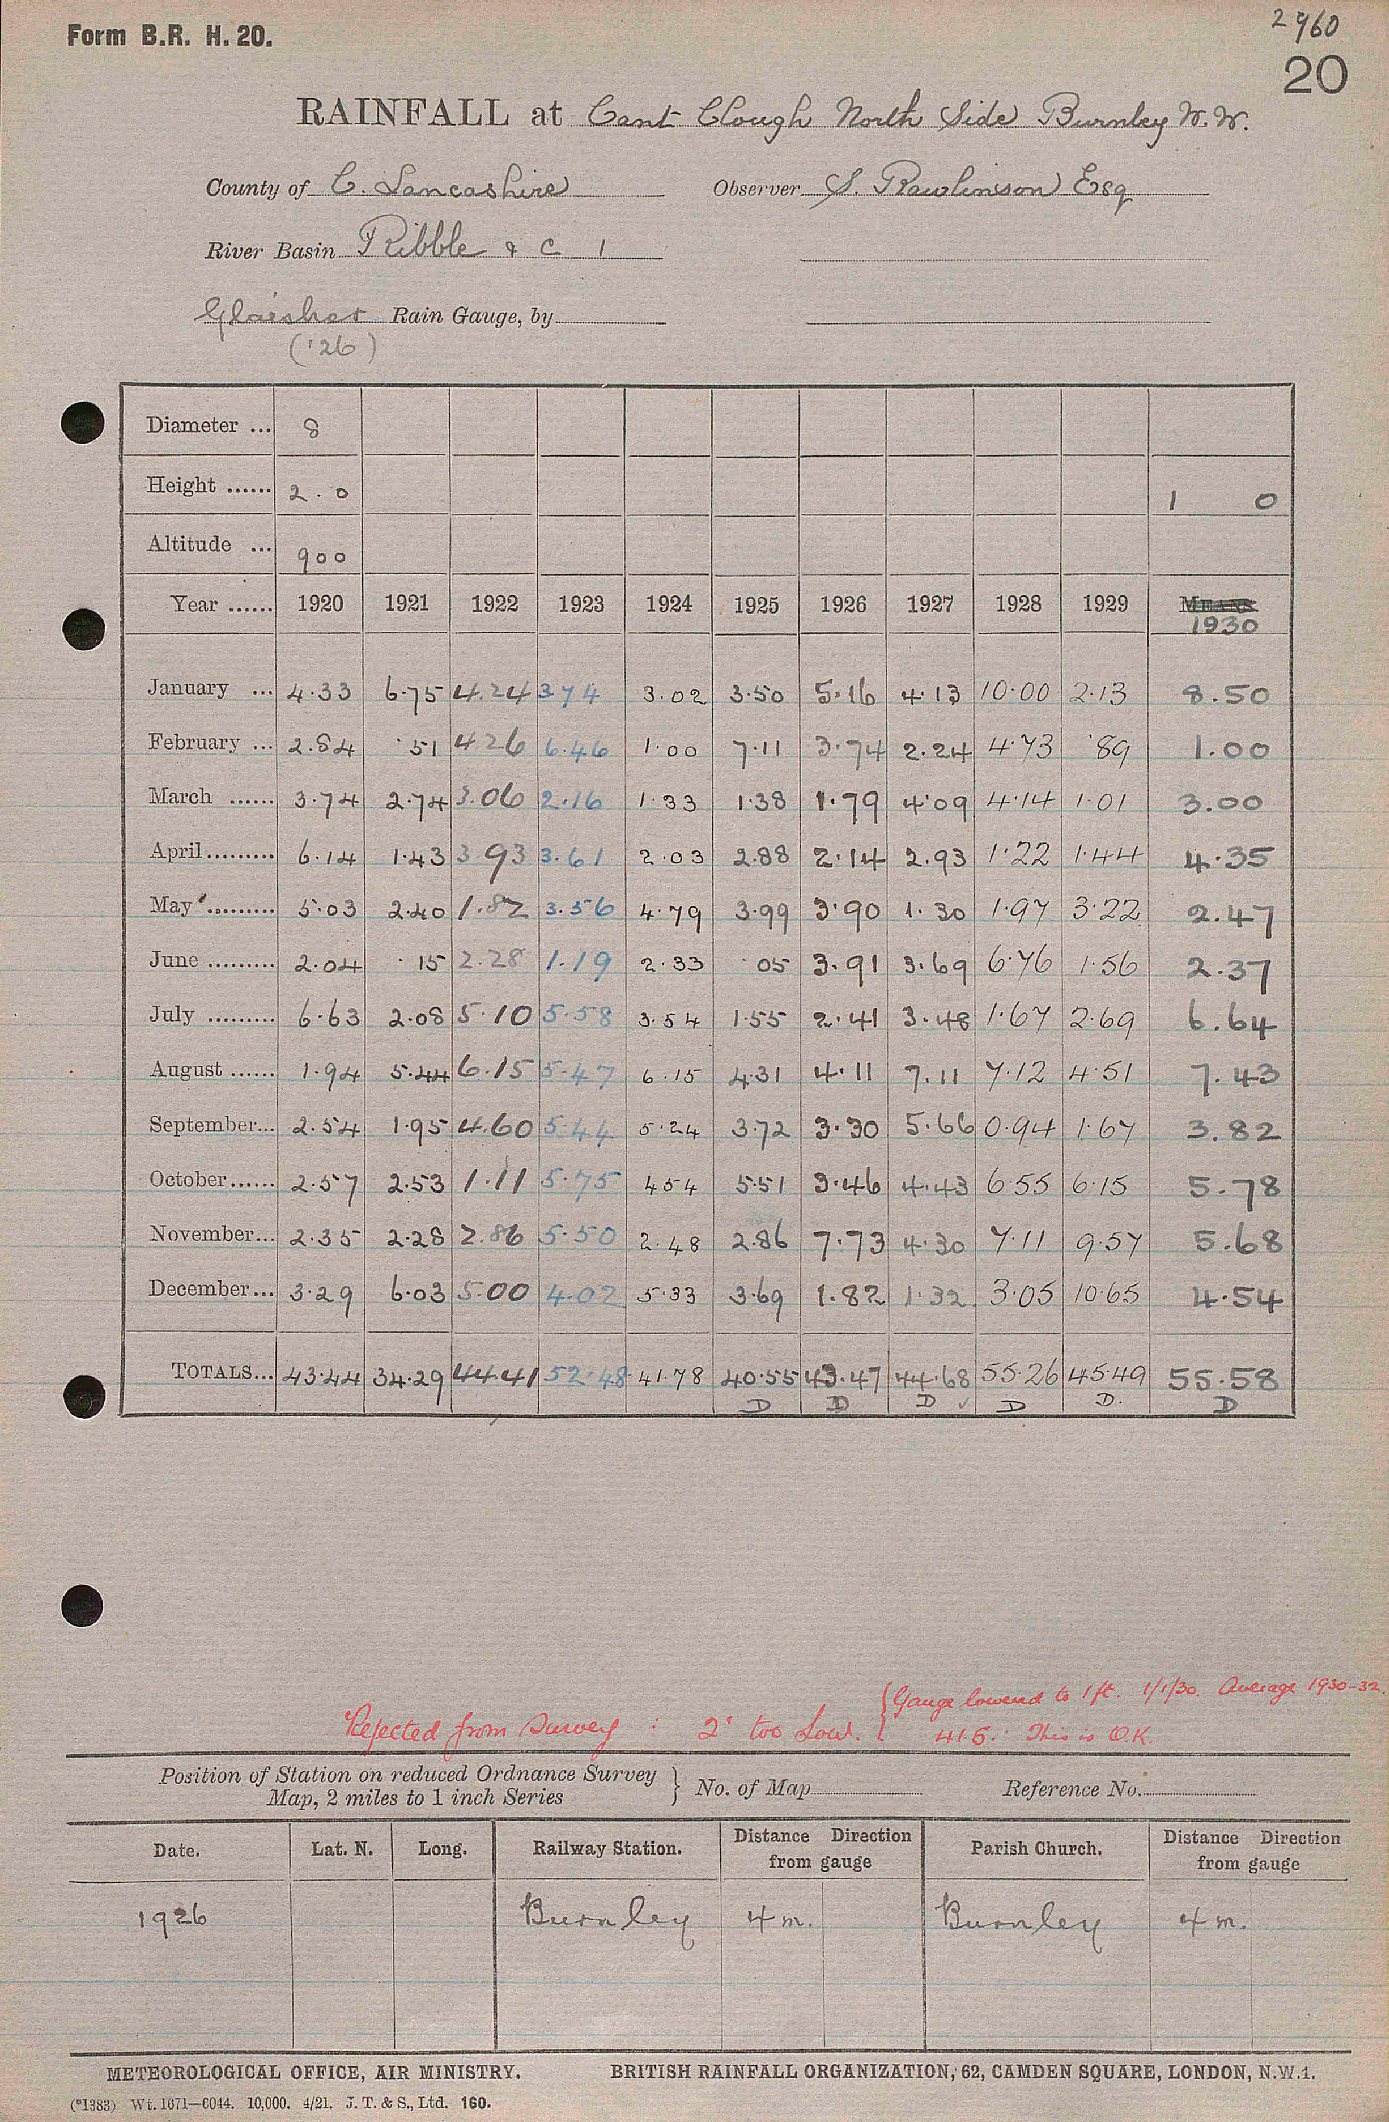 Form B.R. H. 20.
2960
20
RAINFALL at Cant Clough North Side Burnley W.W.
County of C. Lancashire Observer S. Rawlinson Esq
River Basin Ribble & C 1
Glaisher Rain Gauge, by
('26)
Diameter ... 8
Height ...... 2.0 1 0
Altitude ... 900
Year ...... 1920 1921 1922 1923 1924 1925 1926 1927 1928 1929 MEANS
1930
January ... 4.33 6.75 4.24 3.74 3.02 3.50 5.16 4.13 10.00 2.13 8.50
February ... 2.84 .51 4.26 6.46 1.00 7.11 3.74 2.24 4.73 .89 1.00
March ...... 3.74 2.74 3.06 2.16 1.33 1.38 1.79 4.09 4.14 1.01 3.00
April......... 6.14 1.43 3.93 3.61 2.03 2.88 2.14 2.93 1.22 1.44 4.35
May ......... 5.03 2.40 1.82 3.56 4.79 3.99 3.90 1.30 1.97 3.22 2.47
June ......... 2.04 .15 2.28 1.19 2.33 .05 3.91 3.69 6.76 1.56 2.37
July ......... 6.63 2.08 5.10 5.58 3.54 1.55 2.41 3.48 1.67 2.69 6.64
August ...... 1.94 5.44 6.15 5.47 6.15 4.31 4.11 7.11 7.12 4.51 7.43
September... 2.54 1.95 4.60 5.44 5.24 3.72 3.30 5.66 0.94 1.67 3.82
October...... 2.57 2.53 1.11 5.75 4.54 5.51 3.46 4.43 6.55 6.15 5.78
November... 2.35 2.28 2.86 5.50 2.48 2.86 7.73 4.30 7.11 9.57 5.68
December... 3.29 6.03 5.00 4.02 5.33 3.69 1.82 1.32 3.05 10.65 4.54
TOTALS... 43.44 34.29 44.41 52.48 41.78 40.55 43.47 44.68 55.26 45.49 55.58
D D D ✓ D D. D
Gauge lowered to 1 ft. 1/1/30. Average 1930-32.
Rejected from Survey : 2" too Low. 41.5. This is O.K.
Position of Station on reduced Ordnance Survey
Map, 2 miles to 1 inch Series } No. of Map Reference No.
Date. Lat. N. Long. Railway Station. Distance Direction from gauge Parish Church. Distance Direction from gauge
1926 Burnley 4 m. Burnley 4 m.
METEOROLOGICAL OFFICE, AIR MINISTRY. BRITISH RAINFALL ORGANIZATION, 62, CAMDEN SQUARE, LONDON, N.W.1.
(*1383) Wt. 1671—6044. 10,000. 4/21. J. T. & S., Ltd. 160.